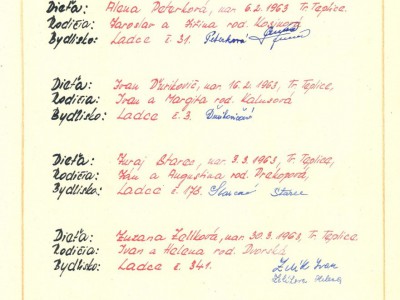 Dieťa: Alena Peterková, nar. 6.2.1963 Tr. Teplice.
Rodičia: Jaroslav a Kristína rod. Kosíková
Bydlisko: Ladce č. 31. Peterková
Dieťa: Ivan Ďurikovič, nar. 16.2.1963, Tr. Teplice,
Rodičia: Ivan a Margita rod. Kalusová
Bydlisko: Ladce č. 3.
Dieťa: Juraj Starec, nar. 3.3.1963, Tr. Teplice,
Rodičia: Ján a Augustína rod. Prekopová,
Bydlisko: Ladce č. 173. Starcová Starec
Dieťa: Zuzana Žilíková, nar. 30.3.1963, Tr. Teplice
Rodičia: Ivan a Helena rod. Dvorská
Bydlisko: Ladce č. 341. Žilík Ivan
Helena